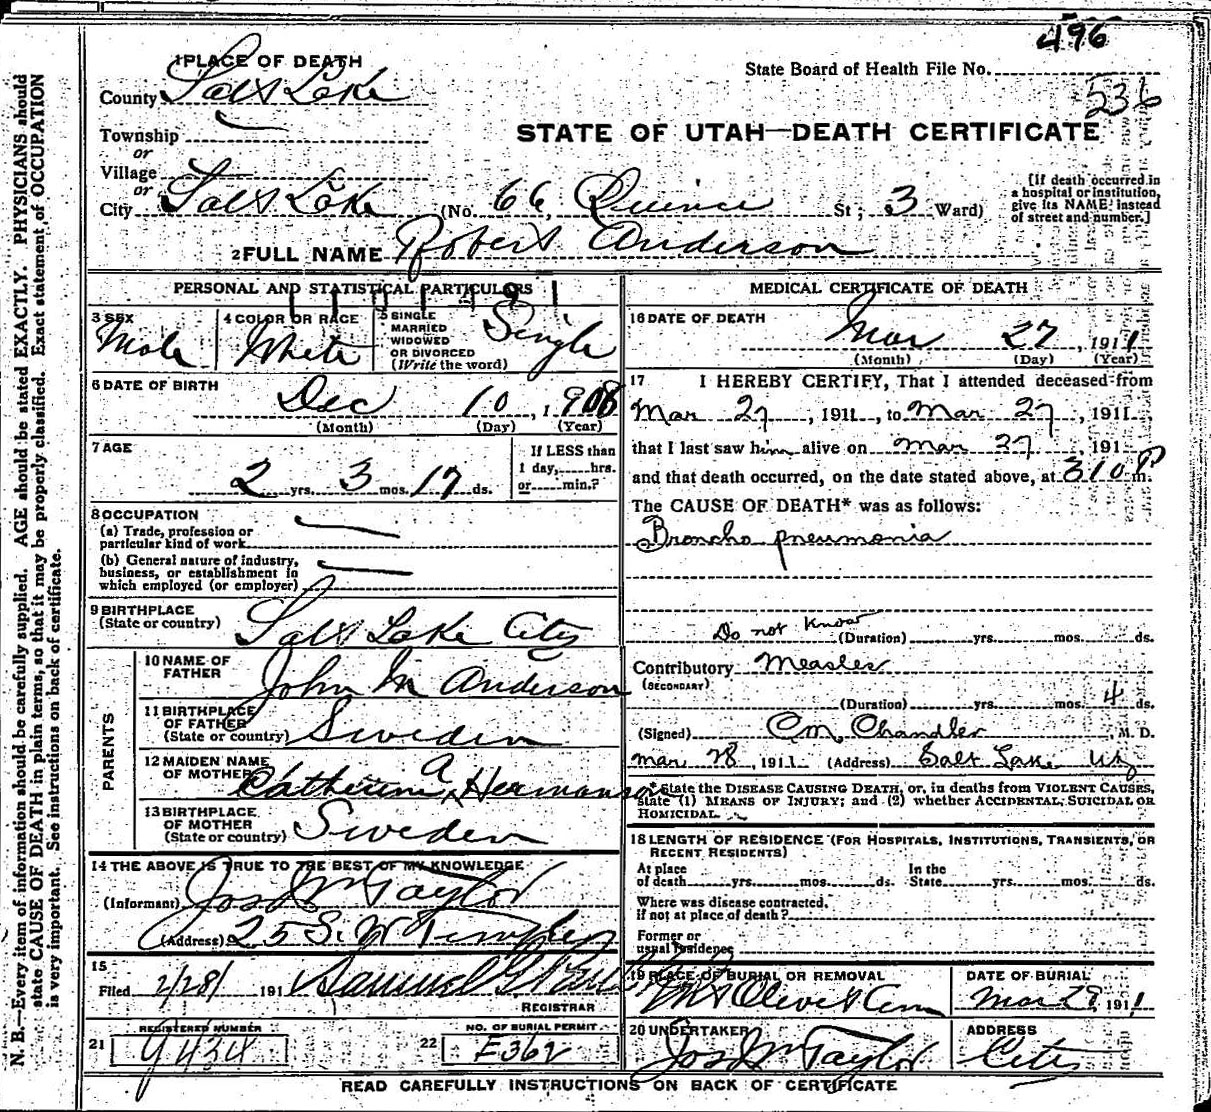 496
State Board of Health File No.
536
1 PLACE OF DEATH
County Salt Lake
Township
or
Village
or
City Salt Lake (No. 66 Quince St; 3 Ward)
STATE OF UTAH—DEATH CERTIFICATE
[If death occurred in a hospital or institution, give its NAME instead of street and number.]
2 FULL NAME Robert Anderson
PERSONAL AND STATISTICAL PARTICULARS
3 SEX Male
4 COLOR OR RACE White
5 SINGLE MARRIED WIDOWED OR DIVORCED (Write the word) Single
6 DATE OF BIRTH
Dec 10, 1908
(Month) (Day) (Year)
7 AGE
2 yrs. 3 mos. 17 ds.
If LESS than 1 day, hrs. or min.?
8 OCCUPATION
(a) Trade, profession or particular kind of work
(b) General nature of industry, business, or establishment in which employed (or employer)
9 BIRTHPLACE
(State or country) Salt Lake City
PARENTS
10 NAME OF FATHER John M Anderson
11 BIRTHPLACE OF FATHER (State or country) Sweden
12 MAIDEN NAME OF MOTHER Catherina A Hermanson
13 BIRTHPLACE OF MOTHER (State or country) Sweden
14 THE ABOVE IS TRUE TO THE BEST OF MY KNOWLEDGE
(Informant) Jos Wm Taylor
(Address) 25 S. W Temple
15
Filed 2/28/ 191 Samuel G
REGISTRAR
21 REGISTERED NUMBER
9434
22 NO. OF BURIAL PERMIT
E362
MEDICAL CERTIFICATE OF DEATH
16 DATE OF DEATH
Mar 27, 1911
(Month) (Day) (Year)
17 I HEREBY CERTIFY, That I attended deceased from
Mar 27, 1911, to Mar 27, 1911
that I last saw him alive on Mar 27, 191
and that death occurred, on the date stated above, at 310 P m.
The CAUSE OF DEATH* was as follows:
Broncho pneumonia
Do not know (Duration) yrs. mos. ds.
Contributory Measles
(SECONDARY)
(Duration) yrs. mos. 4 ds.
(Signed) C M Chandler M. D.
Mar 28, 1911 (Address) Salt Lake
* State the DISEASE CAUSING DEATH, or, in deaths from VIOLENT CAUSES, state (1) MEANS OF INJURY; and (2) whether ACCIDENTAL, SUICIDAL OR HOMICIDAL.
18 LENGTH OF RESIDENCE (FOR HOSPITALS, INSTITUTIONS, TRANSIENTS, OR RECENT RESIDENTS)
At place of death yrs. mos. ds. In the State yrs. mos. ds.
Where was disease contracted, if not at place of death?
Former or usual residence
19 PLACE OF BURIAL OR REMOVAL
Mt Olivet Cem
DATE OF BURIAL
Mar 29 1911
20 UNDERTAKER
Jos Wm Taylor
ADDRESS
City
READ CAREFULLY INSTRUCTIONS ON BACK OF CERTIFICATE
N. B.—Every item of information should be carefully supplied. AGE should be stated EXACTLY. PHYSICIANS should
state CAUSE OF DEATH in plain terms, so that it may be properly classified. Exact statement of OCCUPATION
is very important. See instructions on back of certificate.